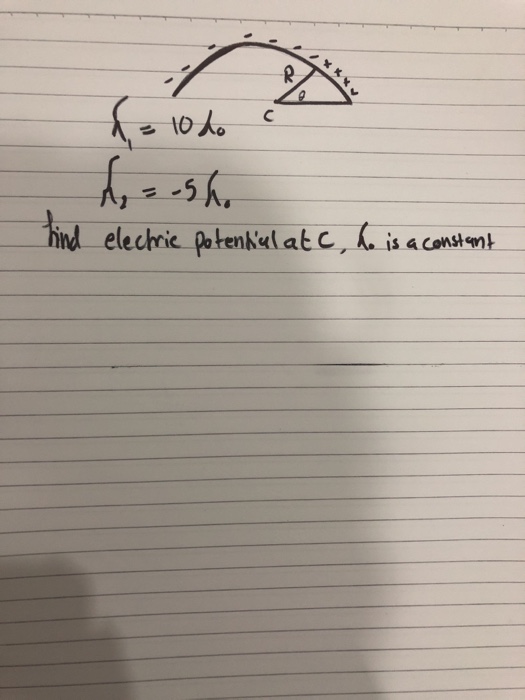 - - - - - - - - + + + +
R
θ
C
λ₁ = 10 λ₀
λ₂ = -5 λ₀
find electric potential at C, λ₀ is a constant